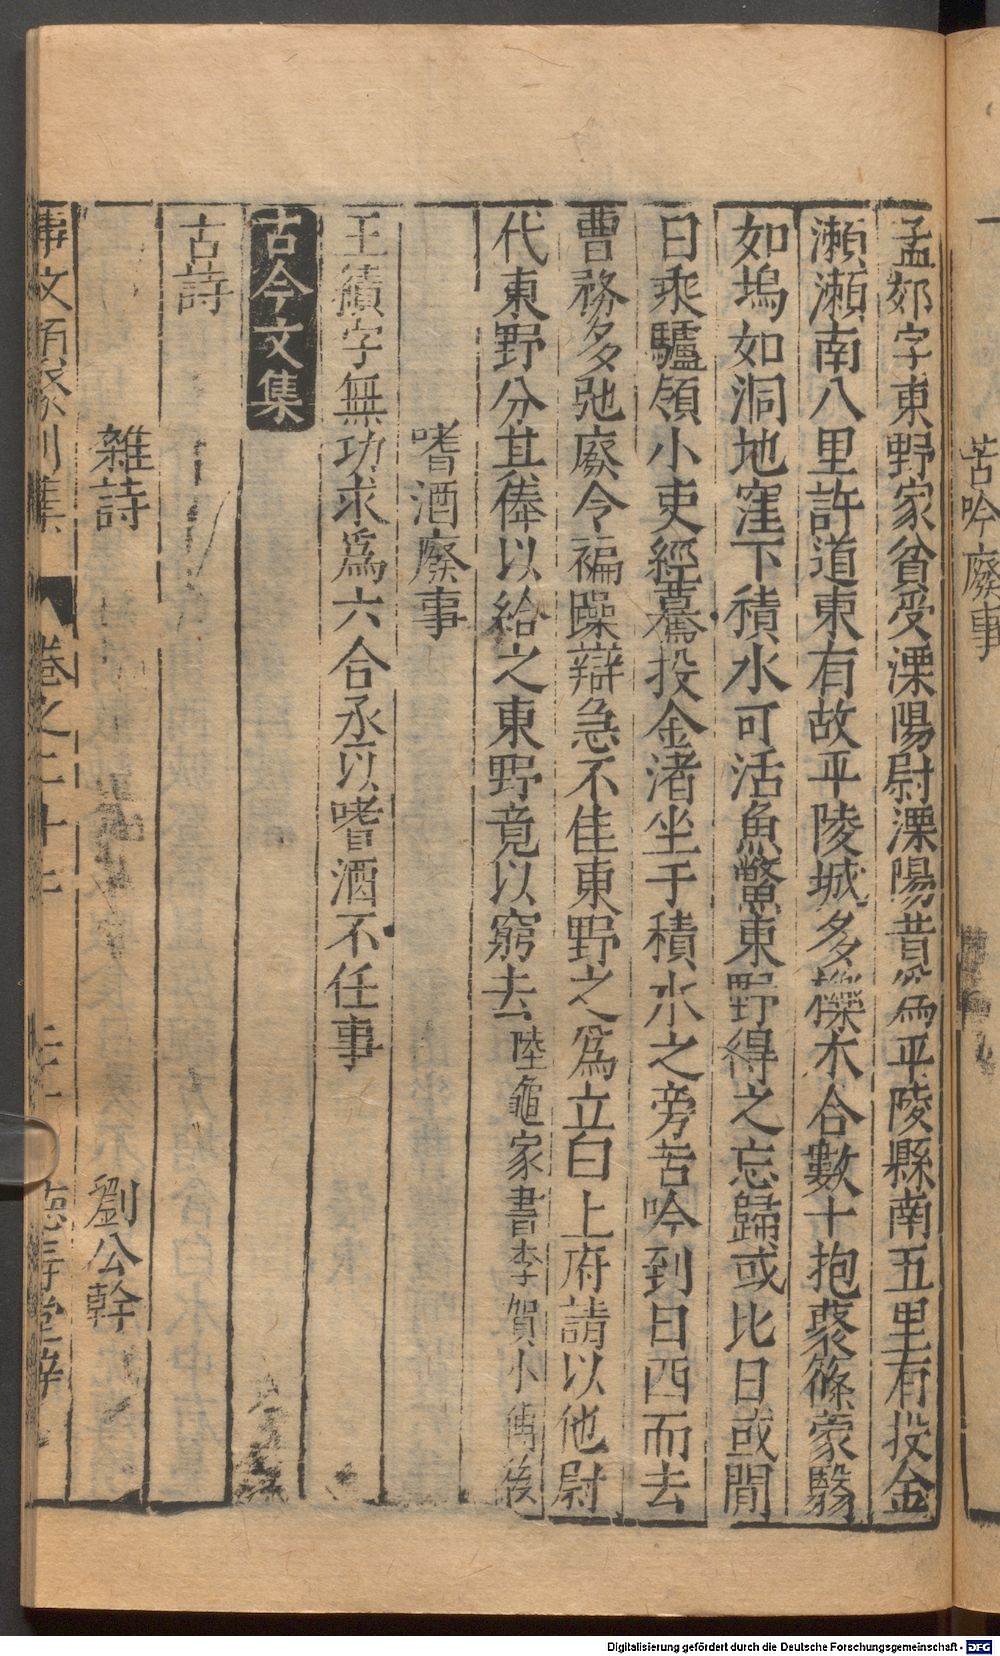 苦吟廢事
孟郊字東野家貧受溧陽尉溧陽昔為平陵縣南五里有投金
瀨瀨南八里許道東有故平陵城多櫟木合數十抱藂篠蒙翳
如塢如洞地窪下積水可活魚鱉東野得之忘歸或比日或間
日乘驢領小吏經驀投金渚坐于積水之旁苦吟到日西而去
曹務多弛廢令褊躁辯急不佳東野之為立白上府請以他尉
代東野分其俸以給之東野竟以窮去陸龜家書李賀小傳後
嗜酒廢事
王績字無功求為六合丞以嗜酒不任事
古今文集
古詩
雜詩 劉公幹
事文類聚別集 卷之二十 德壽堂梓
Digitalisierung gefördert durch die Deutsche Forschungsgemeinschaft - DFG